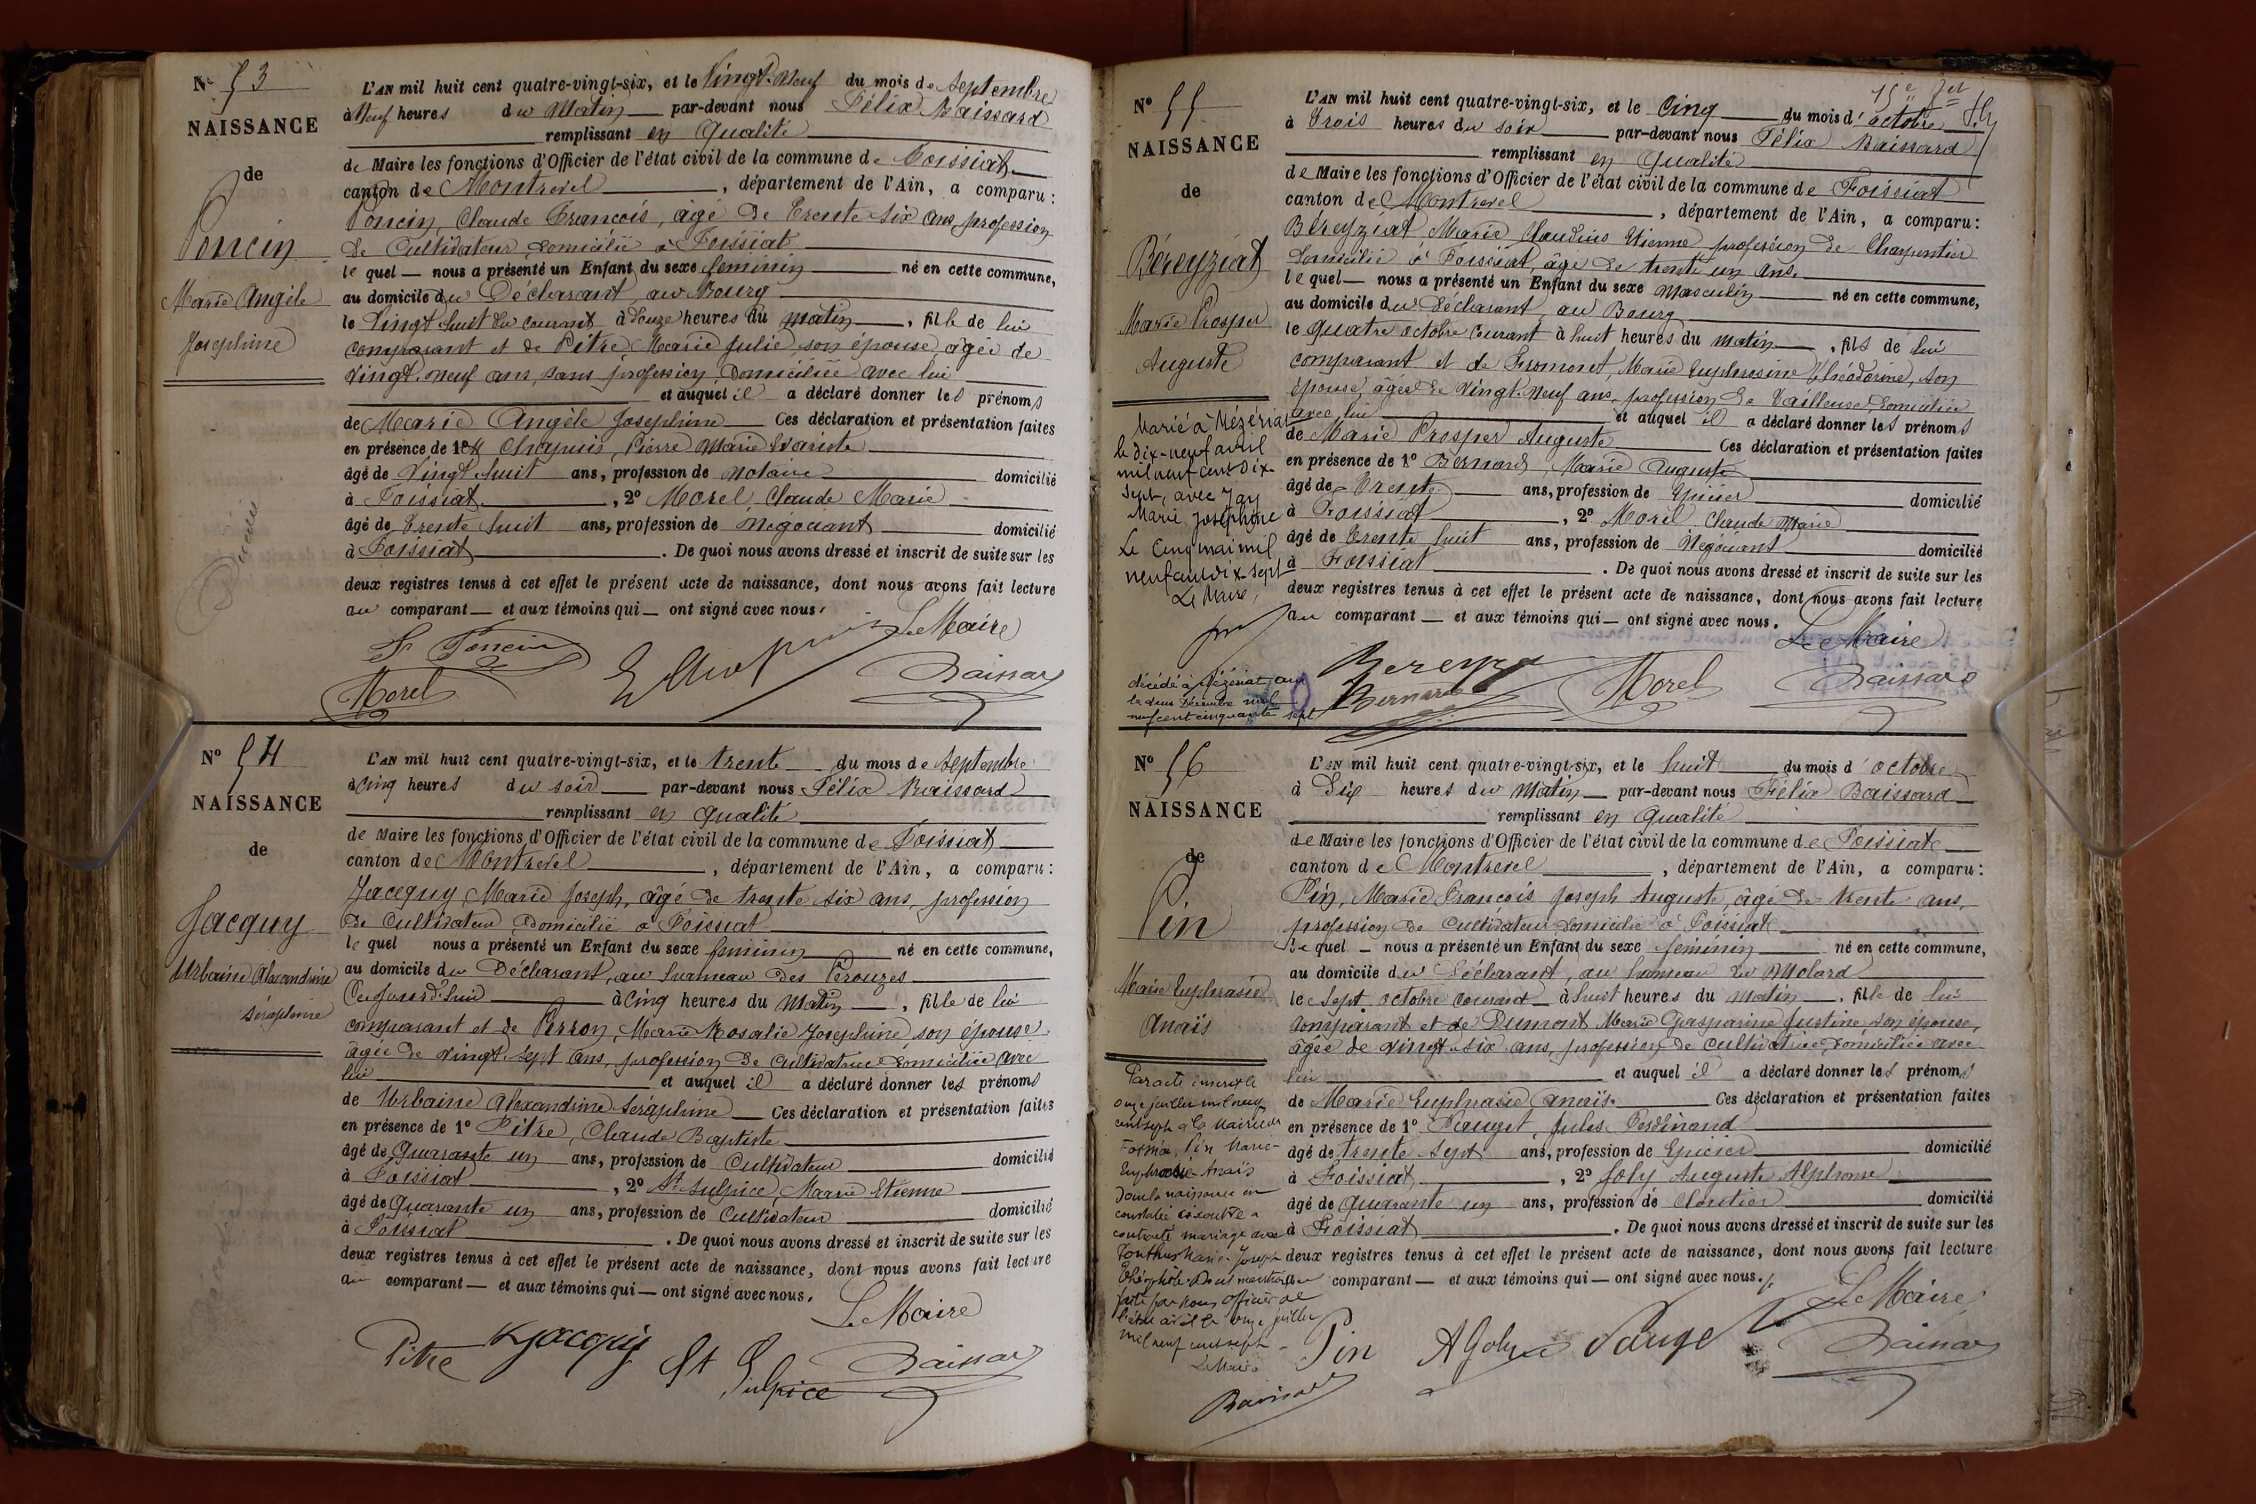 Nº 53
NAISSANCE
de
Poncin
Marie Angèle
Joséphine
L'AN mil huit cent quatre-vingt-six, et le Vingt-Neuf du mois de Septembre
à Neuf heures du Matin par-devant nous Félix Baissard
remplissant en Qualité
de Maire les fonctions d'Officier de l'état civil de la commune de Foissiat
canton de Montrevel, département de l'Ain, a comparu:
Poncin, Claude François, âgé de trente six ans, profession
de Cultivateur, domicilié à Foissiat
le quel nous a présenté un Enfant du sexe féminin né en cette commune,
au domicile du Déclarant, au Bourg
le Vingt huit du courant à douze heures du matin, fille de lui
comparant et de Pitre, Marie Julie, son épouse, agée de
vingt neuf ans, sans profession domiciliée avec lui
et auquel il a déclaré donner les prénoms
de Marie Angèle Joséphine Ces déclaration et présentation faites
en présence de 1º Chapuis, Pierre Marie
âgé de Vingt huit ans, profession de Notaire domicilié
à Foissiat, 2º Morel, Claude Marie
âgé de trente huit ans, profession de Négociant domicilié
à Foissiat. De quoi nous avons dressé et inscrit de suite sur les
deux registres tenus à cet effet le présent acte de naissance, dont nous avons fait lecture
au comparant et aux témoins qui ont signé avec nous.
Le Maire
Poncin
Morel
Baissard
Nº 54
NAISSANCE
de
Jacquy
Urbaine Alexandrine
Séraphine
L'AN mil huit cent quatre-vingt-six, et le trente du mois de Septembre
à Cinq heures du soir par-devant nous Félix Baissard
remplissant en qualité
de Maire les fonctions d'Officier de l'état civil de la commune de Foissiat
canton de Montrevel, département de l'Ain, a comparu:
Jacquy, Marie Joseph, âgé de trente six ans, profession
de Cultivateur, domicilié à Foissiat
le quel nous a présenté un Enfant du sexe féminin né en cette commune,
au domicile du Déclarant, au hameau des Perouzes
Ce jourd'hui à Cinq heures du Matin, fille de lui
comparant et de Perron, Marie Rosalie Joséphine, son épouse
âgée de vingt sept ans, profession de cultivatrice domiciliée avec
lui et auquel il a déclaré donner les prénoms
de Urbaine Alexandrine Séraphine Ces déclaration et présentation faites
en présence de 1º Pitre, Claude Baptiste
âgé de Quarante un ans, profession de Cultivateur domicilié
à Foissiat, 2º St Sulpice, Marie Etienne
âgé de Quarante un ans, profession de Cultivateur domicilié
à Foissiat. De quoi nous avons dressé et inscrit de suite sur les
deux registres tenus à cet effet le présent acte de naissance, dont nous avons fait lecture
au comparant et aux témoins qui ont signé avec nous.
Le Maire
Pitre Jacquy St Sulpice Baissard
Nº 55
NAISSANCE
de
Béreyziat
Marie Prosper
Auguste
Marié à Mézériat
le dix-neuf avril
mil neuf cent dix-
sept, avec Jay
Marie Joséphine
Le cinq mai mil
neuf cent dix-sept
Le Maire,
décédé à Mézériat, Ain
le deux Décembre mil
neuf cent cinquante sept
L'AN mil huit cent quatre-vingt-six, et le Cinq du mois d'octobre
à Trois heures du soir par-devant nous Félix Baissard
remplissant en Qualité
de Maire les fonctions d'Officier de l'état civil de la commune de Foissiat
canton de Montrevel, département de l'Ain, a comparu:
Béreyziat Marie Claudius Etienne profession de Charpentier
domicilié à Foissiat, âgé de trente un ans
le quel nous a présenté un Enfant du sexe Masculin né en cette commune,
au domicile du Déclarant, au Bourg
le quatre octobre courant à huit heures du matin, fils de lui
comparant et de Fromont, Marie Euphrosine Théodorine, son
épouse âgée de Vingt neuf ans, profession de Tailleuse, domiciliée
avec lui et auquel il a déclaré donner les prénoms
de Marie Prosper Auguste Ces déclaration et présentation faites
en présence de 1º Bernard, Marie Auguste
âgé de Trente ans, profession de Epicier domicilié
à Foissiat, 2º Morel Claude Marie
âgé de trente huit ans, profession de Négociant domicilié
à Foissiat. De quoi nous avons dressé et inscrit de suite sur les
deux registres tenus à cet effet le présent acte de naissance, dont nous avons fait lecture
au comparant et aux témoins qui ont signé avec nous.
Le Maire
Bernard Morel Baissard
Nº 56
NAISSANCE
de
Pin
Marie Euphrasie
Anaïs
Par acte inscrit le
onze juillet mil neuf
cent sept à la Mairie de
Pin Marie-
Euphrasie-Anaïs
dont la naissance est
constatée ci-contre a
contracté mariage avec
Marie-Joseph
Théophile. Dont mention
faite par nous officier de
l'état civil le onze juillet
mil neuf cent sept
Le Maire
L'AN mil huit cent quatre-vingt-six, et le huit du mois d'octobre
à Six heures du Matin par-devant nous Félix Baissard
remplissant en Qualité
de Maire les fonctions d'Officier de l'état civil de la commune de Foissiat
canton de Montrevel, département de l'Ain, a comparu:
Pin, Marie François Joseph Auguste, âgé de trente ans,
profession de Cultivateur domicilié à Foissiat
le quel nous a présenté un Enfant du sexe féminin né en cette commune,
au domicile du Déclarant, au hameau du Molard
le Sept octobre courant à huit heures du matin, fille de lui
comparant et de Dumont Marie Gasparine Justine, son épouse,
âgée de vingt six ans, profession de cultivatrice, domiciliée avec
lui et auquel il a déclaré donner les prénoms
de Marie Euphrasie Anaïs. Ces déclaration et présentation faites
en présence de 1º Nauget, Jules Ferdinand
âgé de trente sept ans, profession de Epicier domicilié
à Foissiat, 2º Joly Auguste Alphonse
âgé de quarante un ans, profession de Cloutier domicilié
à Foissiat. De quoi nous avons dressé et inscrit de suite sur les
deux registres tenus à cet effet le présent acte de naissance, dont nous avons fait lecture
au comparant et aux témoins qui ont signé avec nous.
Le Maire
Pin A Joly Nauget Baissard
Baissard